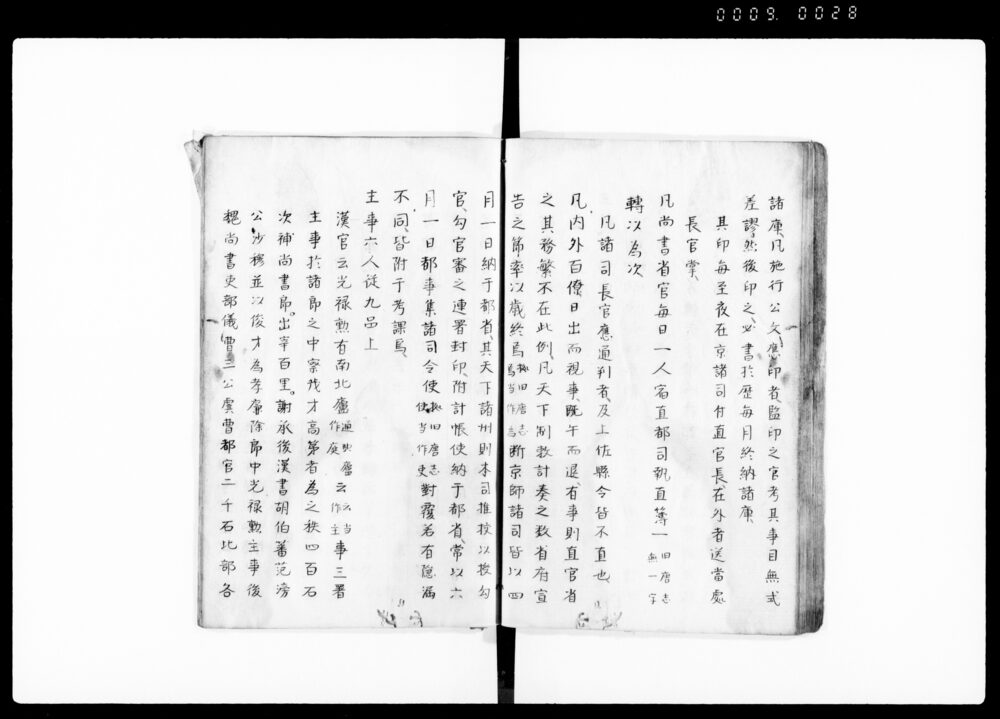 0009. 0028
諸庫凡施行公文應印者監印之官考其事目無式
差謬然後印之必書於歷每月終納諸庫
其印每至夜在京諸司付直官長在外者送當處
長官掌
凡尚書省官每日一人宿直都司執直簿一旧唐志無一字
轉以為次
凡諸司長官應通判者及上佐縣令皆不直也
凡內外百僚日出而視事既午而退有事則直官省
之其務繁不在此例凡天下制敕計奏之数省府宣
告之節率以歲終焉拠旧唐志焉当作為断京師諸司皆以四
月一日納于都省其天下諸州則本司推挍以挍勾
官勾官審之連署封印附計帳使納于都省常以六
月一日都事集諸司令使拠旧唐志使当作史對覆若有隐漏
不同皆附于考課焉
主事六人從九品上
漢官云光禄勲有南北廬通典廬作庭云云当作主事三署
主事於諸郎之中察茂才高第者為之秩四百石
次補尚書郎出宰百里謝承後漢書胡伯蕃范滂
公沙穆並以俊才為孝廉除郎中光禄勲主事後
魏尚書吏部儀曹三公虞曹都官二千石比部各